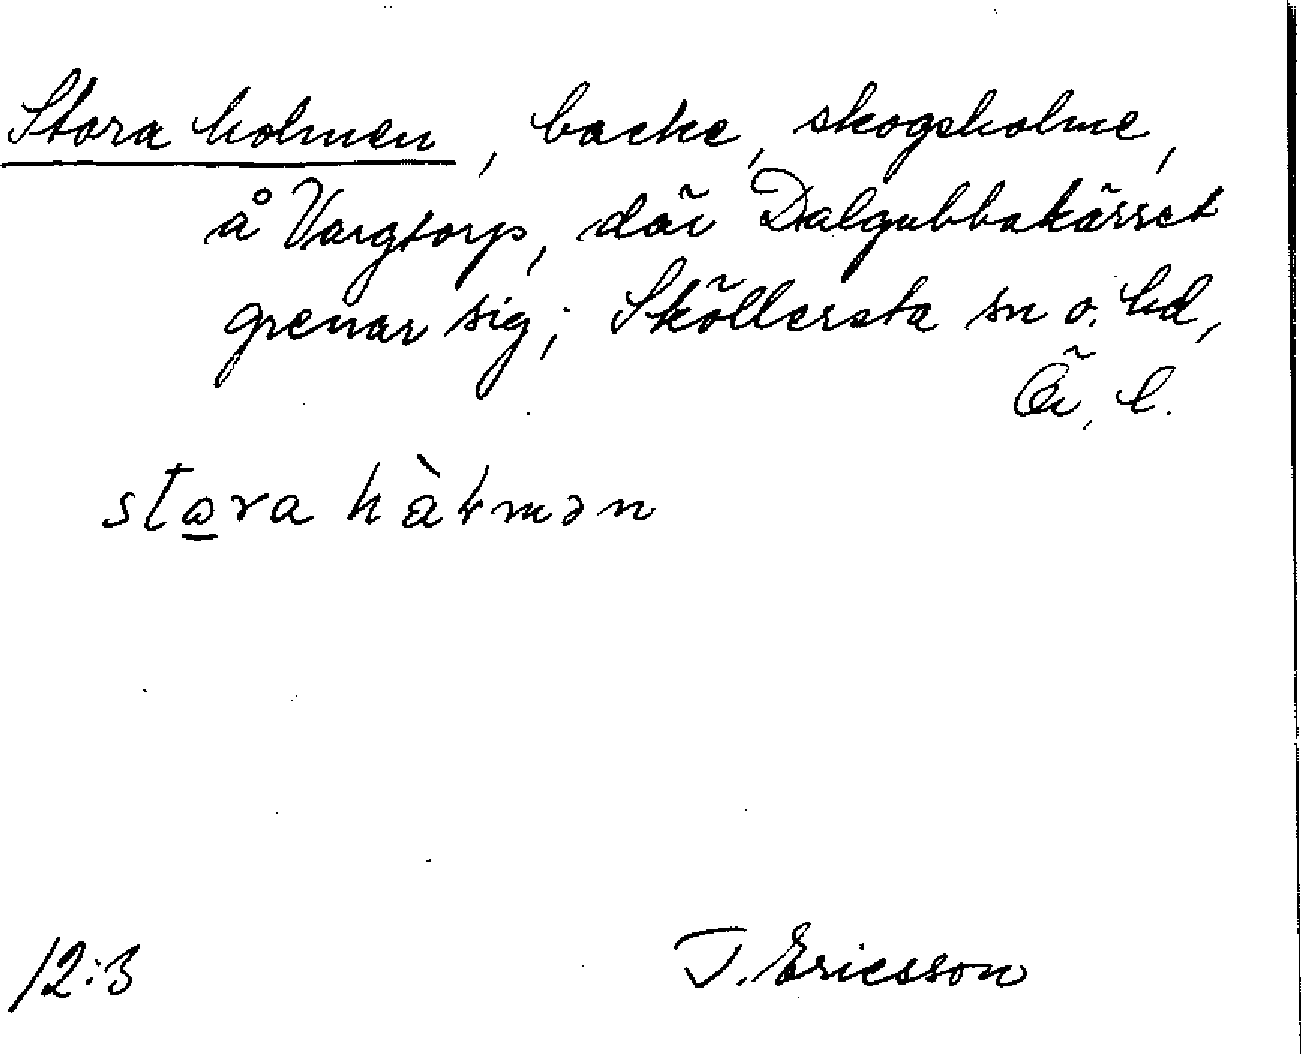 Stora holmen, backe, skogsholme,
å Vargtorp, där Dalgubbakärret
grenar sig; Sköllersta sn o. hd,
Ör. l.
stⱺra hàɫmən
12:3 T. Ericsson